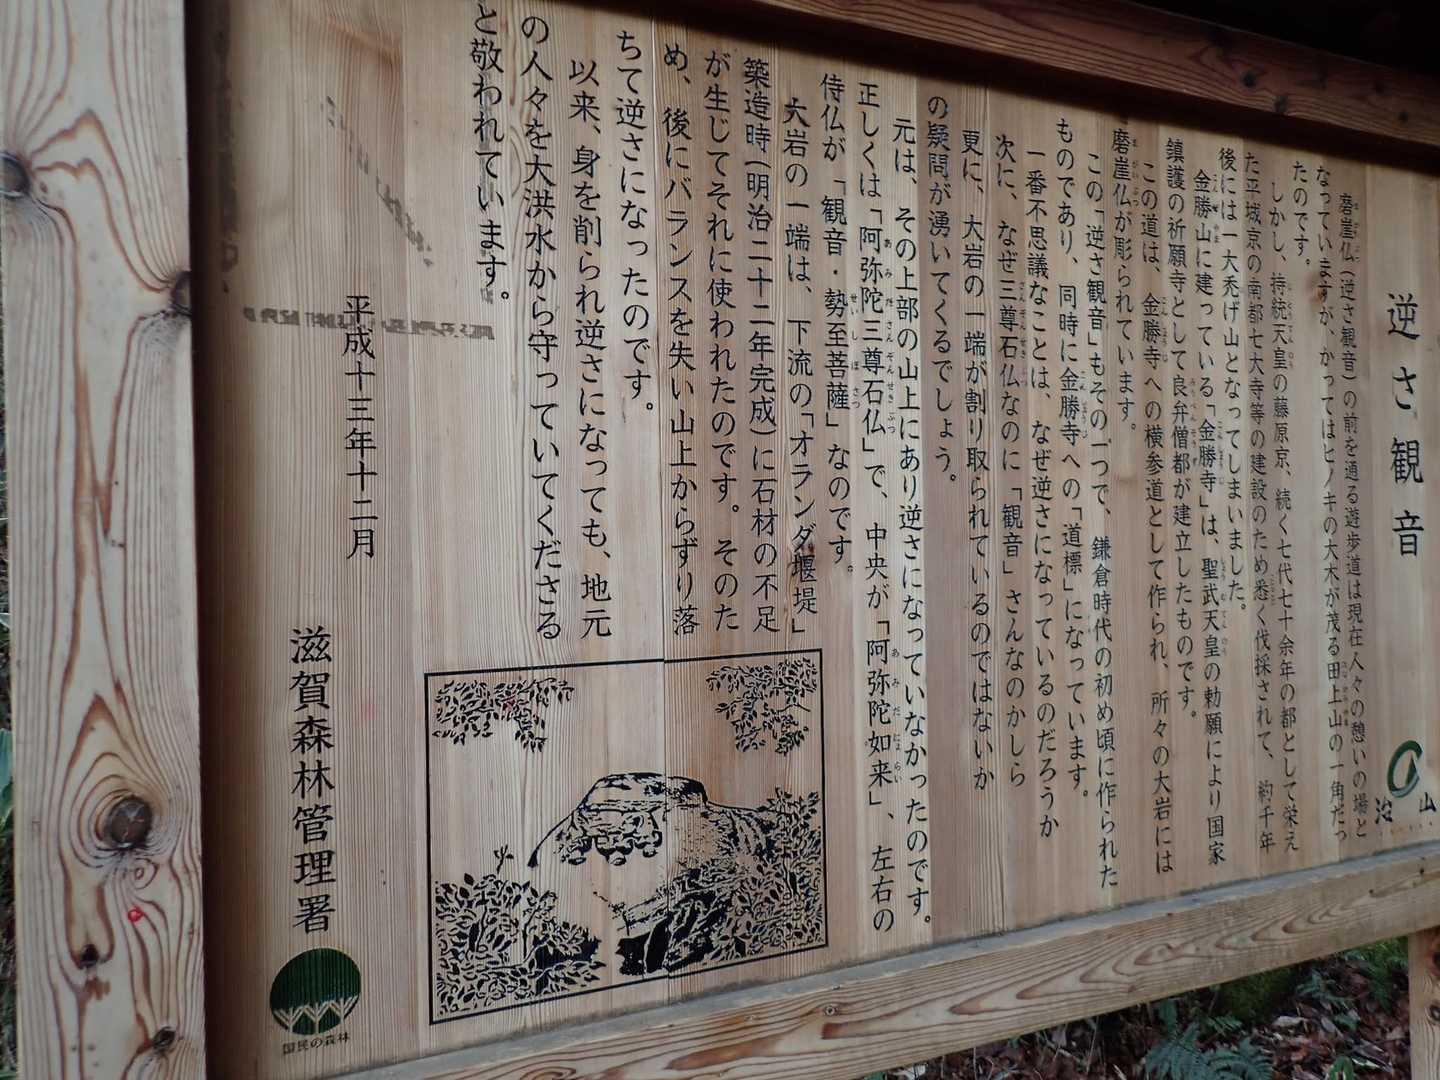 逆さ観音
磨崖仏(逆さ観音)の前を通る遊歩道は現在人々の憩いの場と
なっていますが、かってはヒノキの大木が茂る田上山の一角だっ
たのです。
しかし、持統天皇の藤原京、続く七代七十余年の都として栄え
た平城京の南都七大寺等の建設のため悉く伐採されて、約千年
後には一大禿げ山となってしまいました。
金勝山に建っている「金勝寺」は、聖武天皇の勅願により国家
鎮護の祈願寺として良弁僧都が建立したものです。
この道は、金勝寺への横参道として作られ、所々の大岩には
磨崖仏が彫られています。
この「逆さ観音」もその一つで、鎌倉時代の初め頃に作られた
ものであり、同時に金勝寺への「道標」になっています。
一番不思議なことは、なぜ逆さになっているのだろうか
次に、なぜ三尊石仏なのに「観音」さんなのかしら
更に、大岩の一端が割り取られているのではないか
の疑問が湧いてくるでしょう。
元は、その上部の山上にあり逆さになっていなかったのです。
正しくは「阿弥陀三尊石仏」で、中央が「阿弥陀如来」、左右の
侍仏が「観音・勢至菩薩」なのです。
大岩の一端は、下流の「オランダ堰堤」
築造時(明治二十二年完成)に石材の不足
が生じてそれに使われたのです。そのた
め、後にバランスを失い山上からずり落
ちて逆さになったのです。
以来、身を削られ逆さになっても、地元
の人々を大洪水から守っていてくださる
と敬われています。
平成十三年十二月
滋賀森林管理署
国民の森林
治山